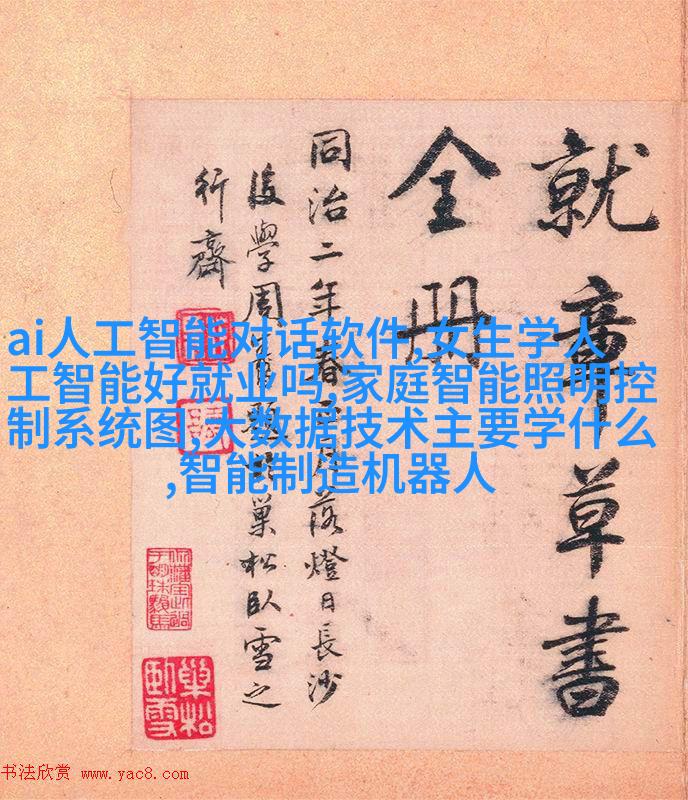 就章草書
全册
同治二年春王月落燈日長沙
後學周

巢松臥雪之
行齋
ai人工智能对话软件,女生学人
工智能好就业吗,家庭智能照明控
制系统图,大数据技术主要学什么
,智能制造机器人
巢松
臥雪
书法欣赏 www.yac8.com